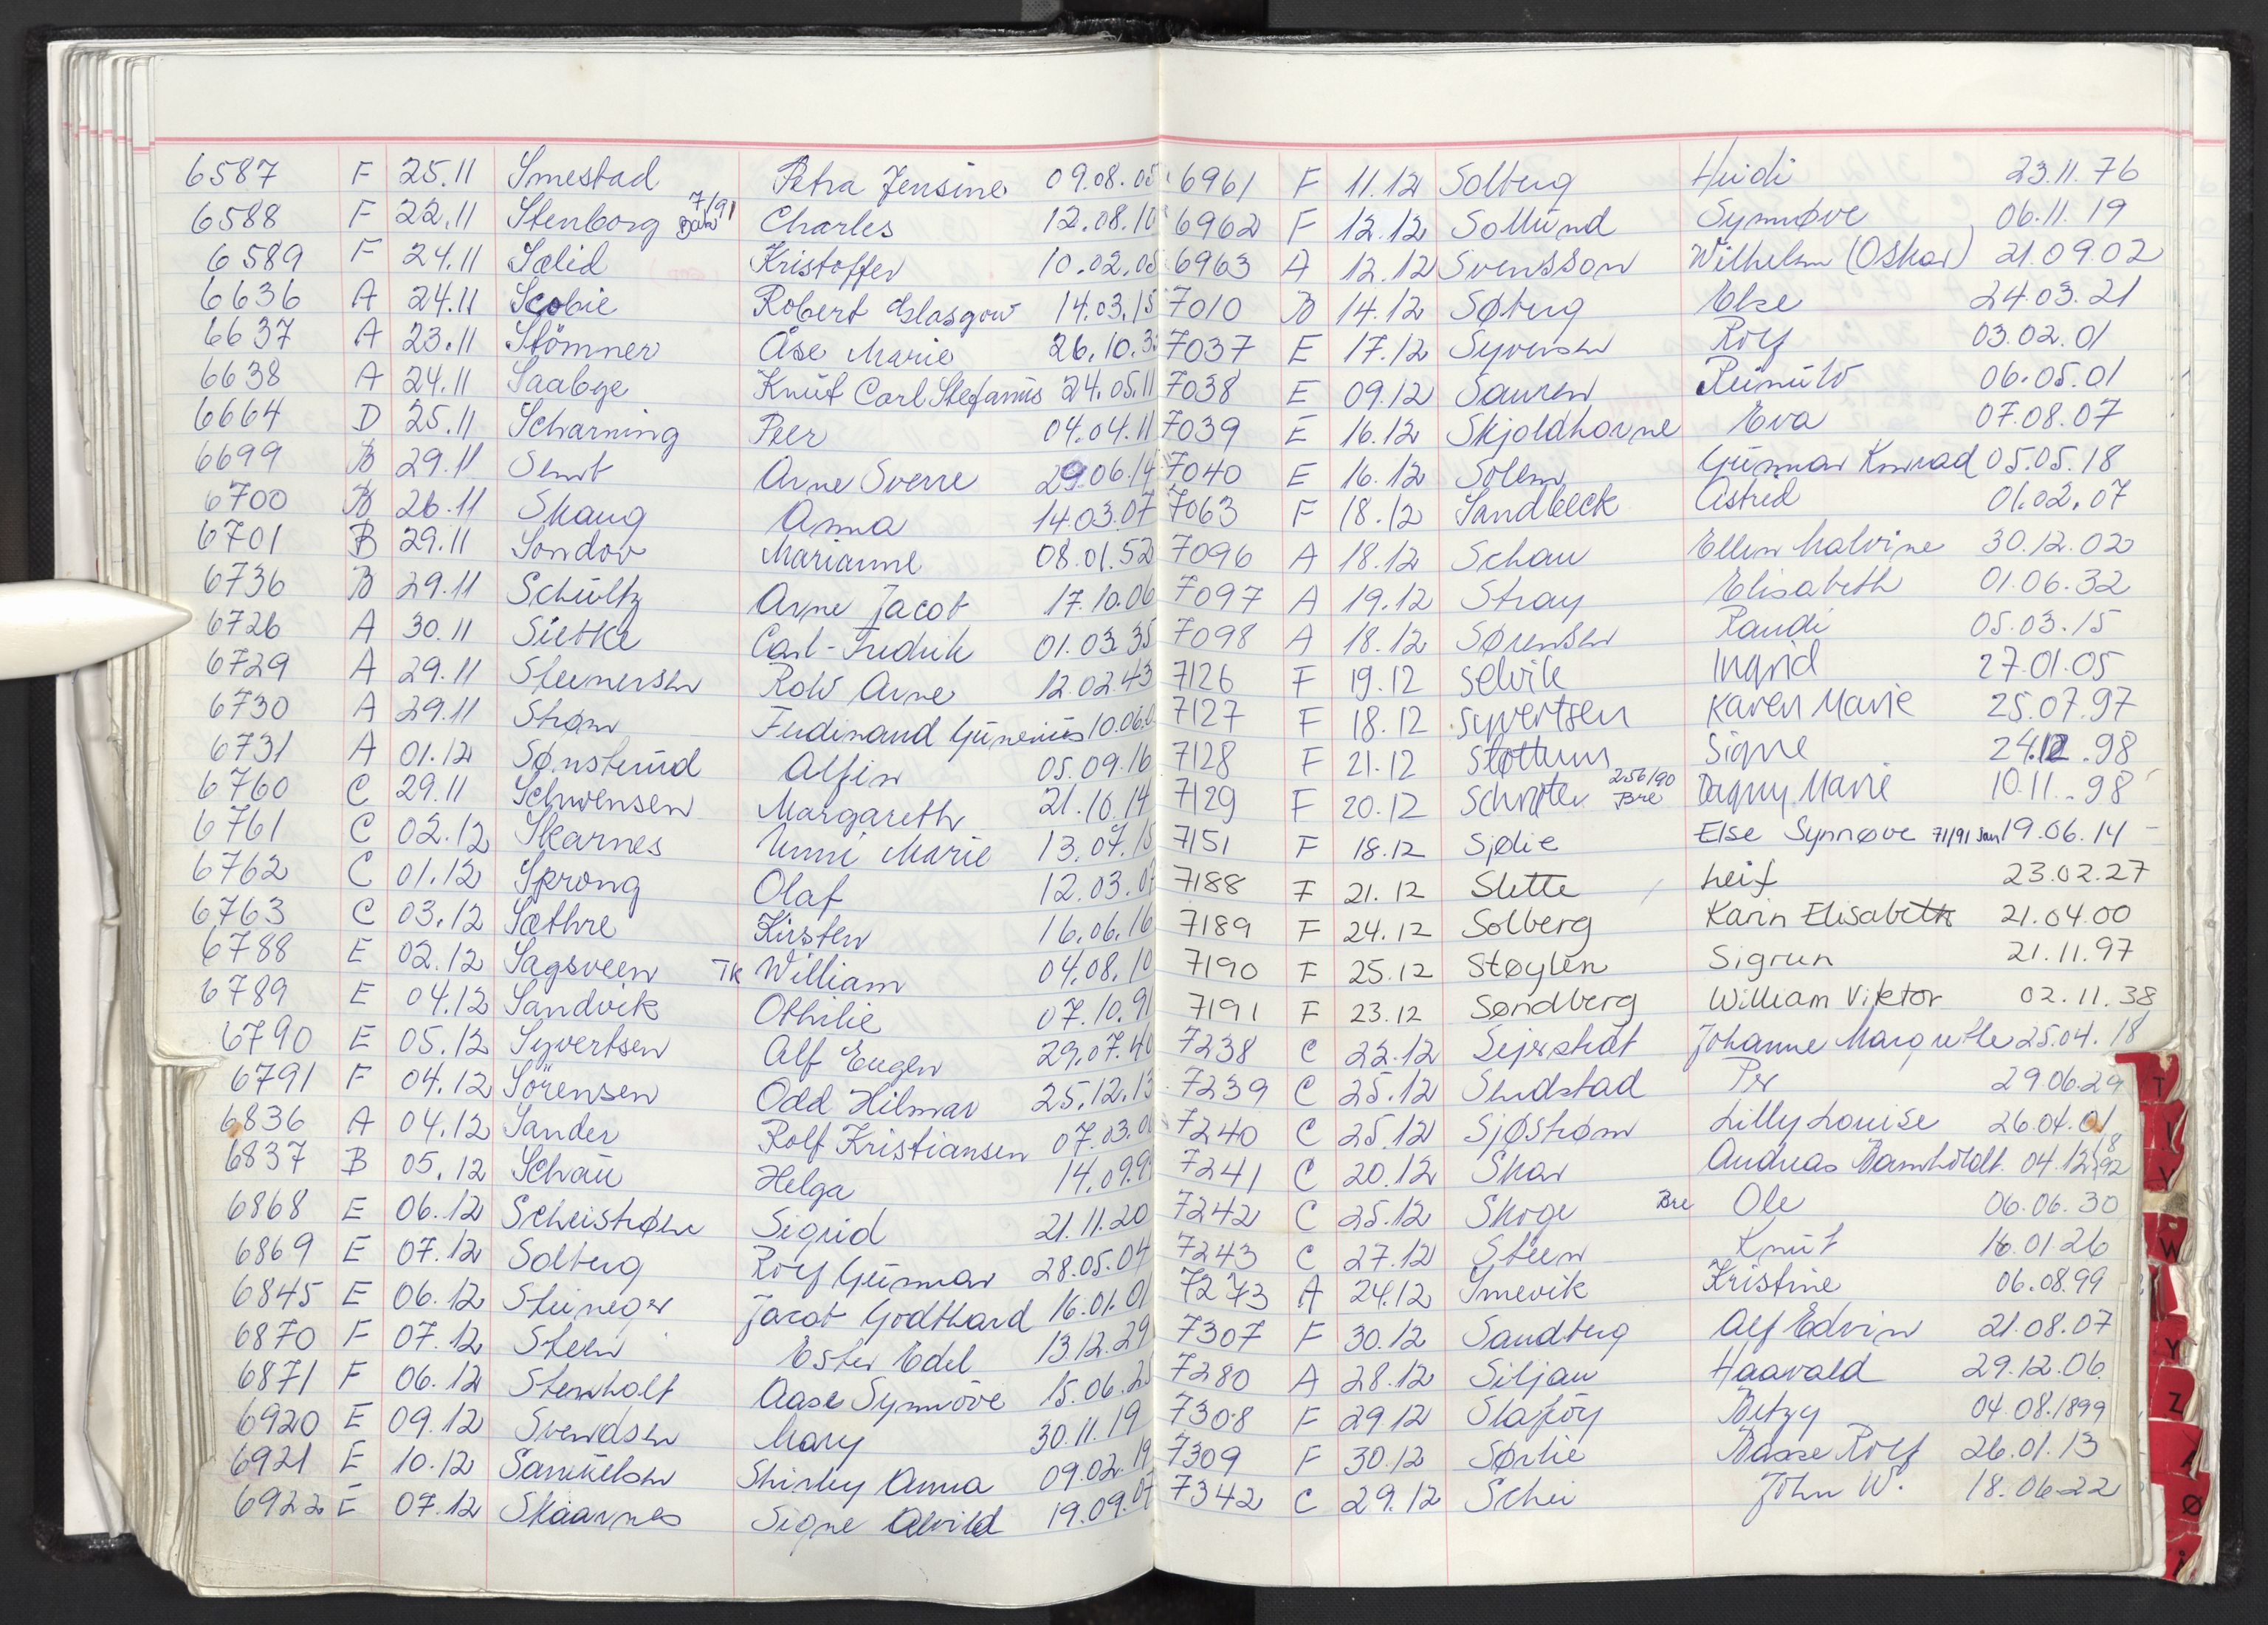 6587 F 25.11 Smestad Petra Jensine 09.08.05
6588 F 22.11 Stenborg 7/91 Charles 12.08.10
6589 F 24.11 Sælid Kristoffer 10.02.05
6636 A 24.11 Scobie Robert Glasgow 14.03.15
6637 A 23.11 Stömner Åse Marie 26.10.3
6638 A 24.11 Saabye Knut Carl Stefanus 24.05.11
6664 D 25.11 Scharning Peer 04.04.11
6699 B 29.11 Arne Sverre 29.06.14
6700 B 26.11 Skaug Anna 14.03.07
6701 B 29.11 Sondov Marianne 08.01.52
6736 B 29.11 Schultz Arne Jacob 17.10.06
6726 A 30.11 Siebke Carl-Fredrik 01.03.35
6729 A 29.11 Steinersen Rolv Arne 12.02.43
6730 A 29.11 Strøm Ferdinand Gunerius 10.06.0
6731 A 01.12 Sønsterud Alfin 05.09.16
6760 C 29.11 Schwensen Margareth 21.10.14
6761 C 02.12 Skarnes Unni Marie 13.07.15
6762 C 01.12 Sprong Olaf 12.03.0
6763 C 03.12 Sæthre Kirsten 16.06.16
6788 E 02.12 Sagsveen TK William 04.08.10
6789 E 04.12 Sandvik Othilie 07.10.91
6790 E 05.12 Syvertsen Alf Eugen 29.07.40
6791 F 04.12 Sörensen Odd Hilmar 25.12.13
6836 A 04.12 Sander Rolf Kristiansen 07.03.06
6837 B 05.12 Schau Helga 14.09.9
6868 E 06.12 Scheistrøen Sigrid 21.11.20
6869 E 07.12 Solberg Rolf Gunnar 28.05.04
6845 E 06.12 Steineger Jacob Godthard 16.01.01
6870 F 07.12 Steen Ester Edel 13.12.29
6871 F 06.12 Stenholt Aase Synnöve 15.06.25
6920 E 09.12 Svendsen Mary 30.11.19
6921 E 10.12 Samuelsen Shirley Anna 09.02.19
6922 E 07.12 Skaarnes Signe Alvild 19.09.07
6961 F 11.12 Solberg Heidi 23.11.76
6962 F 12.12 Sollund Synnøve 06.11.19
6963 A 12.12 Svensson Wilhelm (Oskar) 21.09.02
7010 B 14.12 Søberg Else 24.03.21
7037 E 17.12 Syversen Rolf 03.02.01
7038 E 09.12 Sauren 06.05.01
7039 E 16.12 Skjoldhorne Eva 07.08.07
7040 E 16.12 Solem Gunnar Konrad 05.05.18
7063 F 18.12 Sandbeck Astrid 01.02.07
7096 A 18.12 Schau Ellen Malvine 30.12.02
7097 A 19.12 Stray Elisabeth 01.06.32
7098 A 18.12 Sørensen Randi 05.03.15
7126 F 19.12 Selvik Ingrid 27.01.05
7127 F 18.12 Syvertsen Karen Marie 25.07.97
7128 F 21.12 Støttum Signe 24.12.98
7129 F 20.12 Schrøter 256/90 Bre Dagny Marie 10.11.98
7151 F 18.12 Sjølie Else Synnøve 71/91 Jan 19.06.14
7188 F 21.12 Slette Leif 23.02.27
7189 F 24.12 Solberg Karin Elisabeth 21.04.00
7190 F 25.12 Støylen Sigrun 21.11.97
7191 F 23.12 Søndberg William Viktor 02.11.38
7238 C 22.12 Sejerstat Johanne Margrethe 25.04.18
7239 C 25.12 Sendstad Per 29.06.29
7240 C 25.12 Sjøstrøm Lilly Louise 26.04.01
7241 C 20.12 Skar Andreas Barnholdt 04.12.1892
7242 C 25.12 Skoge Bre Ole 06.06.30
7243 C 27.12 Steen Knut 16.01.26
7273 A 24.12 Smevik Kristine 06.08.99
7307 F 30.12 Sandberg Alf Edvin 21.08.07
7280 A 28.12 Siljan Haavald 29.12.06
7308 F 29 12 Slapöy Betzy 04.08.1899
7309 F 30.12 Sørlie Basse Rolf 26.01.13
7342 C 29.12 Schei John W. 18.06.22
T
V
W
Y
Z
Ø